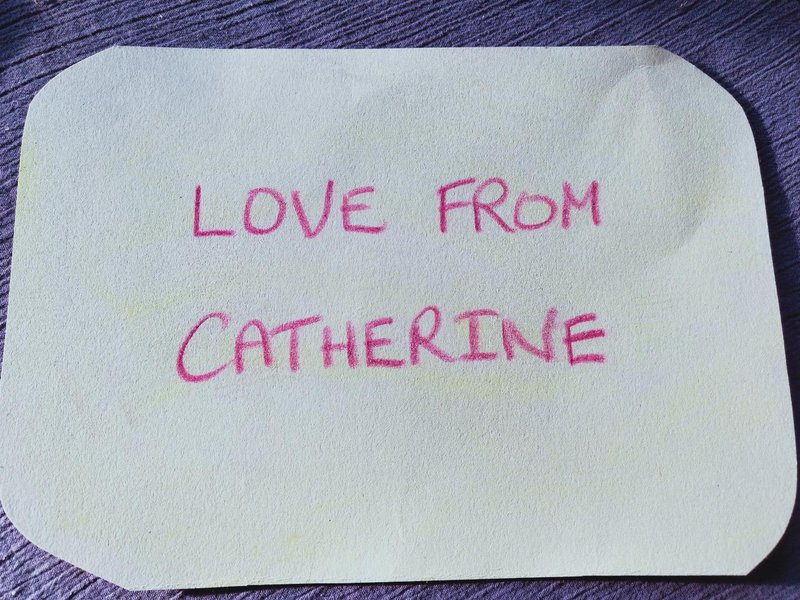 LOVE FROM
CATHERINE